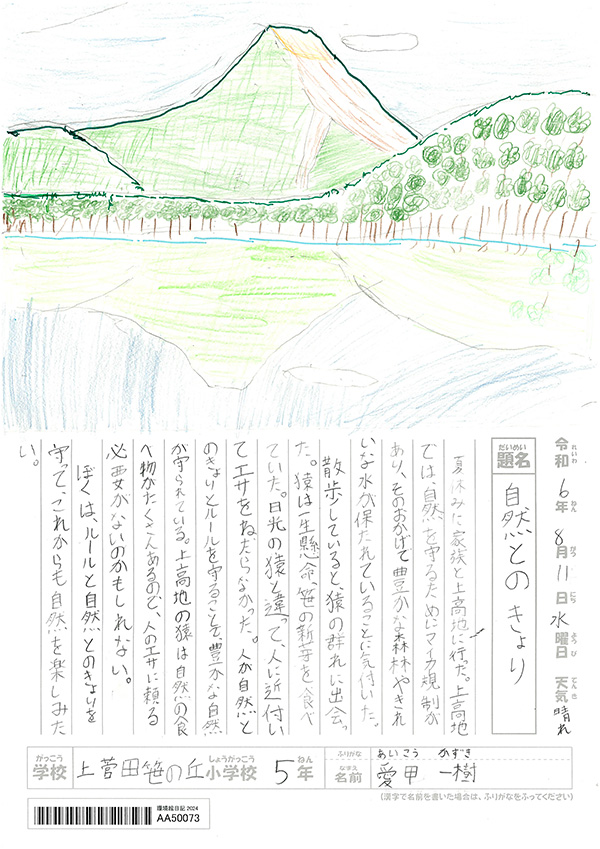 令和6年8月11日水曜日 天気晴れ
れいわ ねん がつ にち ようび てんき
だいめい
題名 自然とのきょり
夏休みに家族と上高地に行った。上高地
では、自然を守るためにマイカ規制が
あり、そのおかげで豊かな森林やきれ
いな水が保たれていることに気付いた。
散歩していると、猿の群れに出会っ
た。猿は一生懸命、笹の新芽を食べ
ていた。日光の猿と違って、人に近付い
てエサをねだらなかった。人が自然と
のきょりとルールを守ることで、豊かな自然
が守られている。上高地の猿は自然の食
べ物がたくさんあるので、人のエサに頼る
必要がないのかもしれない。
ぼくは、ルールと自然とのきょりを
守って、これからも自然を楽しみた
い。
がっこう しょうがっこう ねん ふりがな あいこう かずき
学校 上菅田笹の丘小学校 5年 なまえ 名前 愛甲 一樹
(漢字で名前を書いた場合は、ふりがなをふってください)
環境絵日記 2024
AA50073